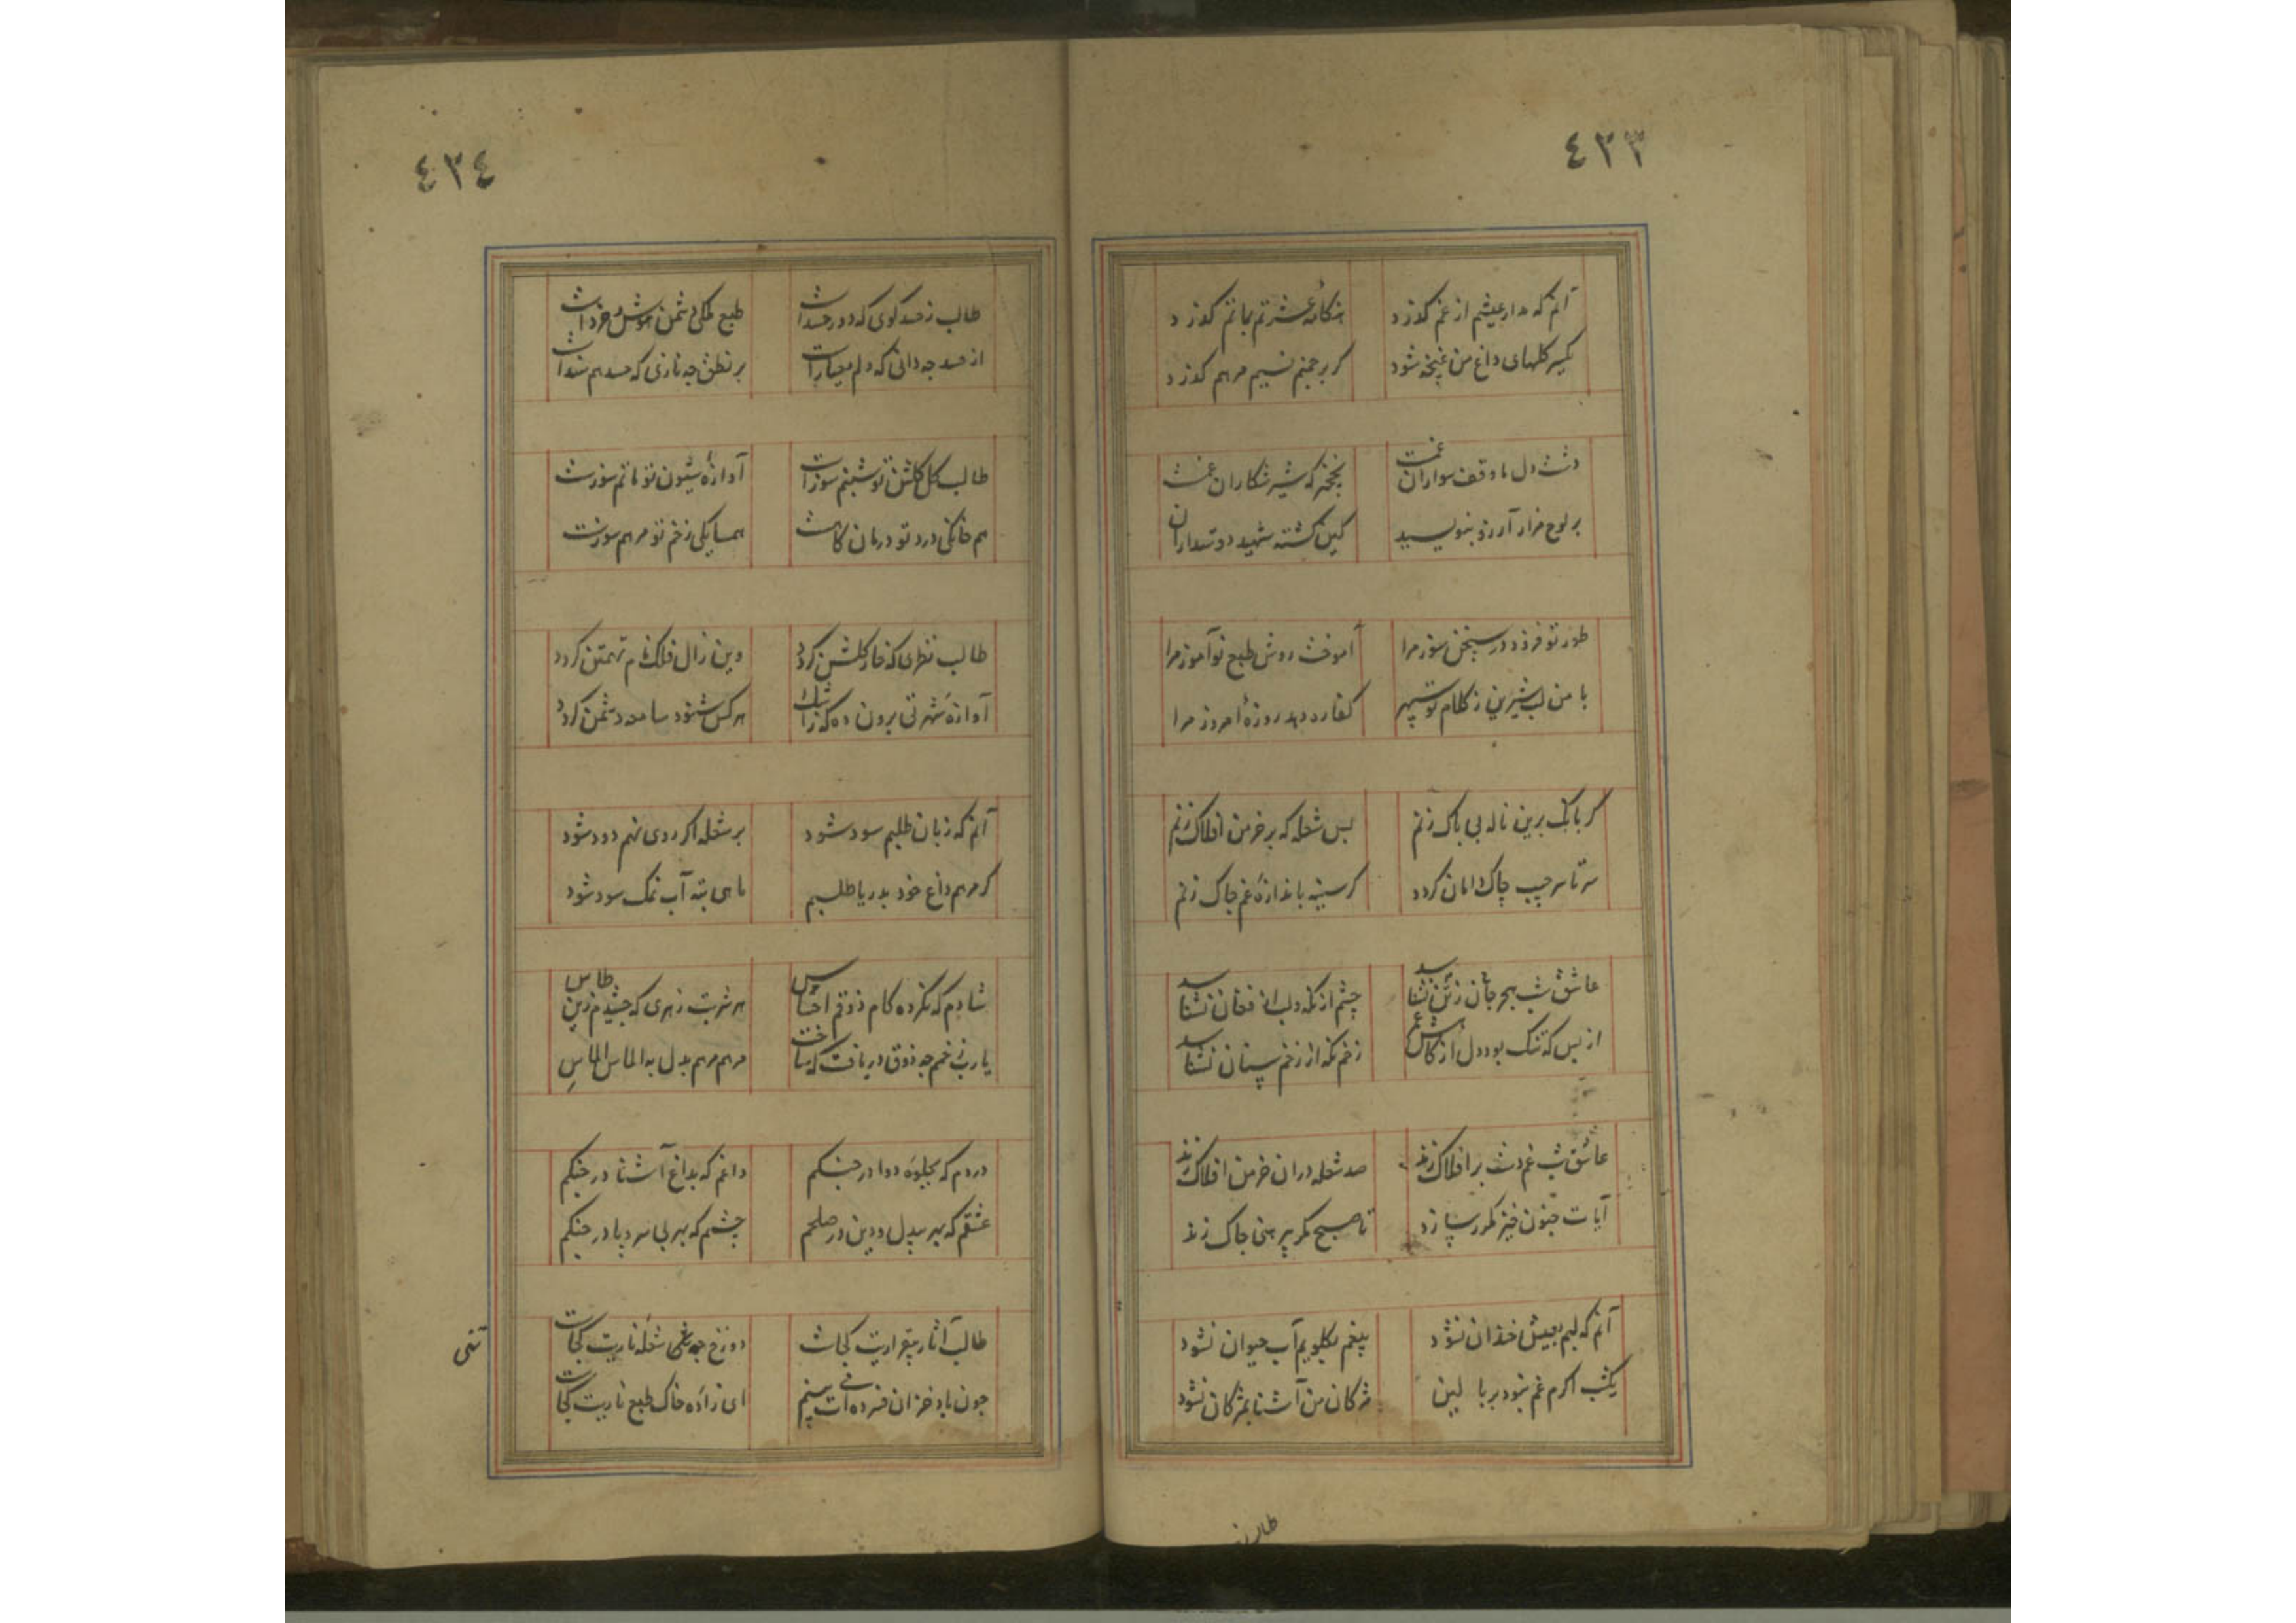 ٤٢٣
آنم که مدار عیشم از غم گذرد هنگامه عشرتم بماتم گذرد
یکسر گلهای داغ من غنچه شود گر بر چمنم نسیم مرهم گذرد
دشت دل ما وقف سواران غمست نخچیر که شیر شکاران غمست
بر لوح مزار آرزو بنویسید کین کشته شهید دوستداران
طور تو فروزد در سخن سوز مرا آموخت روش طبع نوآموز مرا
با من لب شیرین ز کلام تو سپهر کفاره دهد روزهٔ امروز مرا
گر بانک برین ناله بی باک زنم بس شعله که بر خرمن افلاک زنم
سر تا سر جیب چاک دامان گردد گر سینه باندازهٔ غم چاک زنم
عاشق شب هجر جان ز تن نشناسد چشم از نکه و لب از فغان نشناسد
از بس که تنک بود دل از کاوش غم زخم نکه از زخم سنان نشناسد
عاشق شب غم دست بر افلاک زند صد شعله در ان خرمن افلاک زند
آیات جنون خیز مکرر سازد تا صبح مکر پیرهنی چاک زند
آنم که لبم بعیش خندان نشود پیغم بکلویم آب حیوان نشود
یکشب اکرم غم نبود بر بالین مژکان من آشنا بمژکان نشود
طالب
٤٢٤
طالب ز حسد کوی که دور حسدست طبع ملکی دشمن هوش و خردست
از حسد چه دانی که دلم معیارست بر نطق چه نازی که حسد هم سندست
طالب کل کلشن تو شبنم سوزست آوازهٔ شیون تو ماتم سوزست
هم خانکی درد تو درمان کاهست همسایکی زخم تو مرهم سوزست
طالب نظری که خار کلشن کردد وین زال فلک نام تهمتن کردد
آوازهٔ شهرتی برون ده که ز رشک هر کس شنود سامعه دشمن کردد
آنم که زبان طلبم سود شود بر شعله اکر روی نهم دود شود
کر مرهم داغ خود بدریا طلبم ماهی بته آب نمک سود شود
شادم که نکرده کام ذوقم احساس هر شربت زهری که چشیدم زین طاس
یا رب زخم چه ذوق دریافت که ساخت مرهم مرهم بدل به الماس الماس
دردم که بجلوه دوا در جنکم داغم که بداغ آشنا در جنکم
عشقم که بهر بیدل و دین در صلحم چشمم که بهر بی سر و پا در جنکم
طالب آثار بیقراریت کجاست دوزخ چه غمی شعله ناریت کجاست
چون باد خزان فسرده ات می بینم ای زاده خاک طبع ناریت کجاست